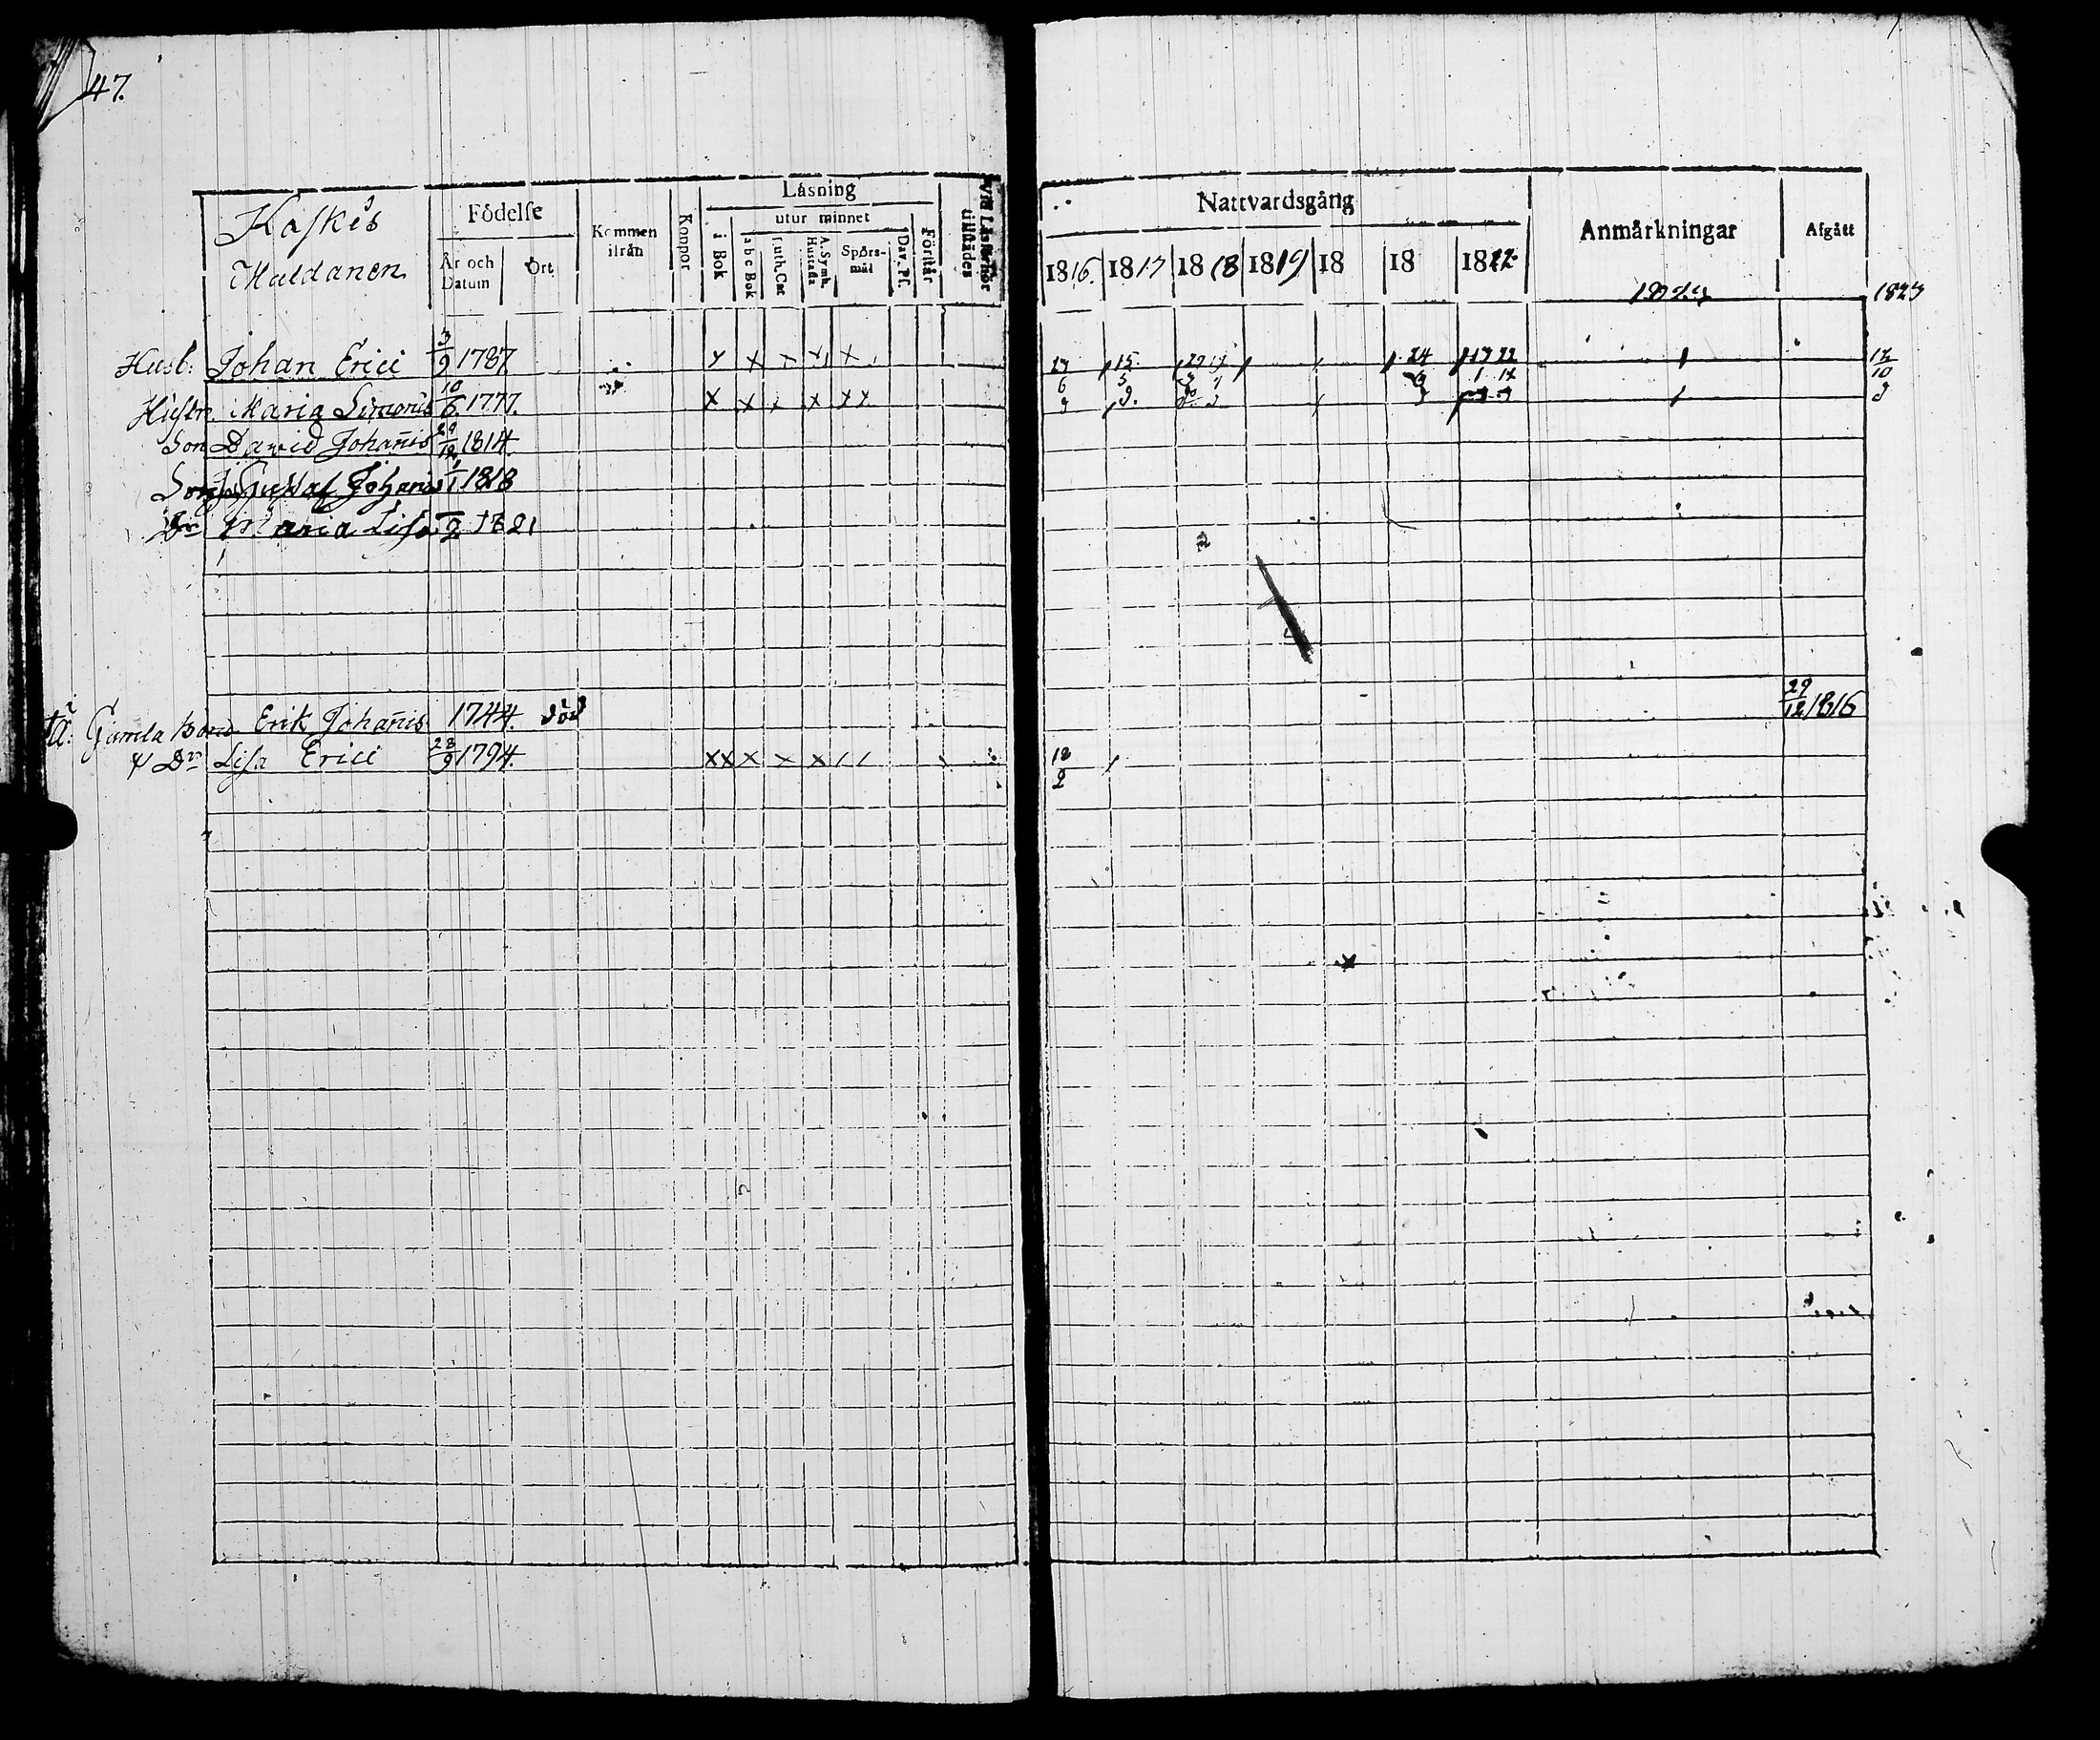 47.
Kaskis
Maldanen
Födelse
År och Datum
Ort
Kommen ifrån
Koppor
Läsning
i Bok
utur minnet
a b c Bok
Luth. Cat
A. Symb. Hustafla
Spörs-mål
Dav. Ps.
Förstår
Vid Läsförhör tillstädes
Nattvardsgång
1816. 1817 1818 1819 18 18 1822
Anmärkningar
Afgått
1823
Husb. Johan Erici 3/9 1787 x x x x x 17 15 24 17 22 12
Hustr. Maria Simonis 10/6 1777. x x x x x x 10
Son David Johañis 29/12 1814
Son Gustaf Johanis 1/1 1818
Dr Maria Lisa 1821
Gamla Bond Erik Johañis 1744. död 29/12 1816
Dr Lisa Erici 28/9 1794. x x x x x / / 18/2